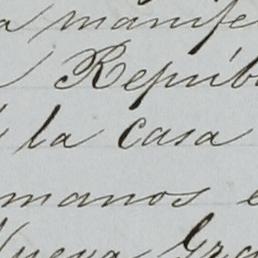 a manife
Repúb
la casa
manos
Nueva Gra